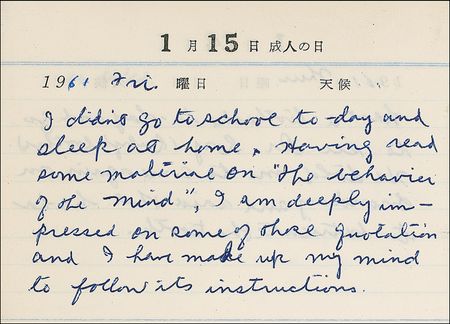 1月15日 成人の日
1961 Fri. 曜日 天候
I didn't go to school to-day and
sleep at home. Having read
some material on "The behavior
of the mind", I am deeply im-
pressed on some of those quotation
and I have make up my mind
to follow its instructions.